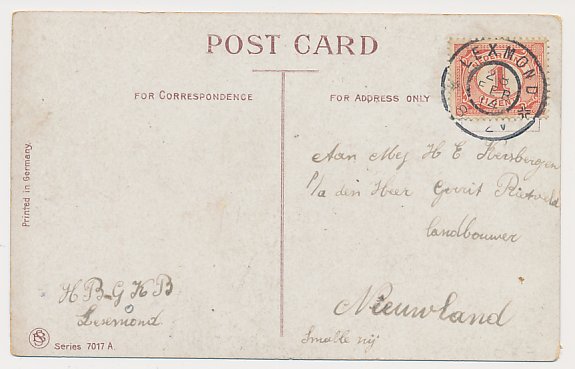 POST CARD
FOR CORRESPONDENCE
FOR ADDRESS ONLY
LEXMOND
1
Printed in Germany.
Aan Mej H E Kersbergen
p/a den Heer Gerrit Rietveld
landbouwer
Nieuwland
Smalle zij
H B-G K B
Lexmond
Series 7017 A.